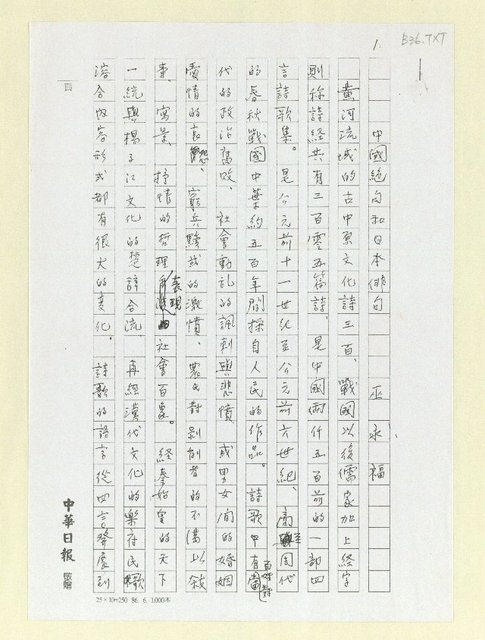 B36.TXT
1.
中國絕句和日本俳句　巫永福
黃河流域的古中原文化詩三百、戰國以後儒家加上経字
則称詩経共有三百零五篇詩　是中國兩仟五百年前的一部四
言詩歌集。是公元前十一世紀至公元前六世紀、商至周代
的春秋戰國中葉約五百年間採自人民的作品。詩歌中有當時對
代的政治腐敗、社會動乱的諷刺與悲憤　或男女间的婚姻
愛情的哀怨、窮兵黷武的激憤、農民對剝削者的不満以敘
事、寓景、抒情的哲理表現社會百象。経秦始皇的天下
一統與揚子江文化的楚辞合流　再経漢代文化的樂府民歌
溶合內容形式都有很大的変化。詩歌的語言從四言發展到
四
中華日報
敬贈
25×10=250 86. 6. 1,000本